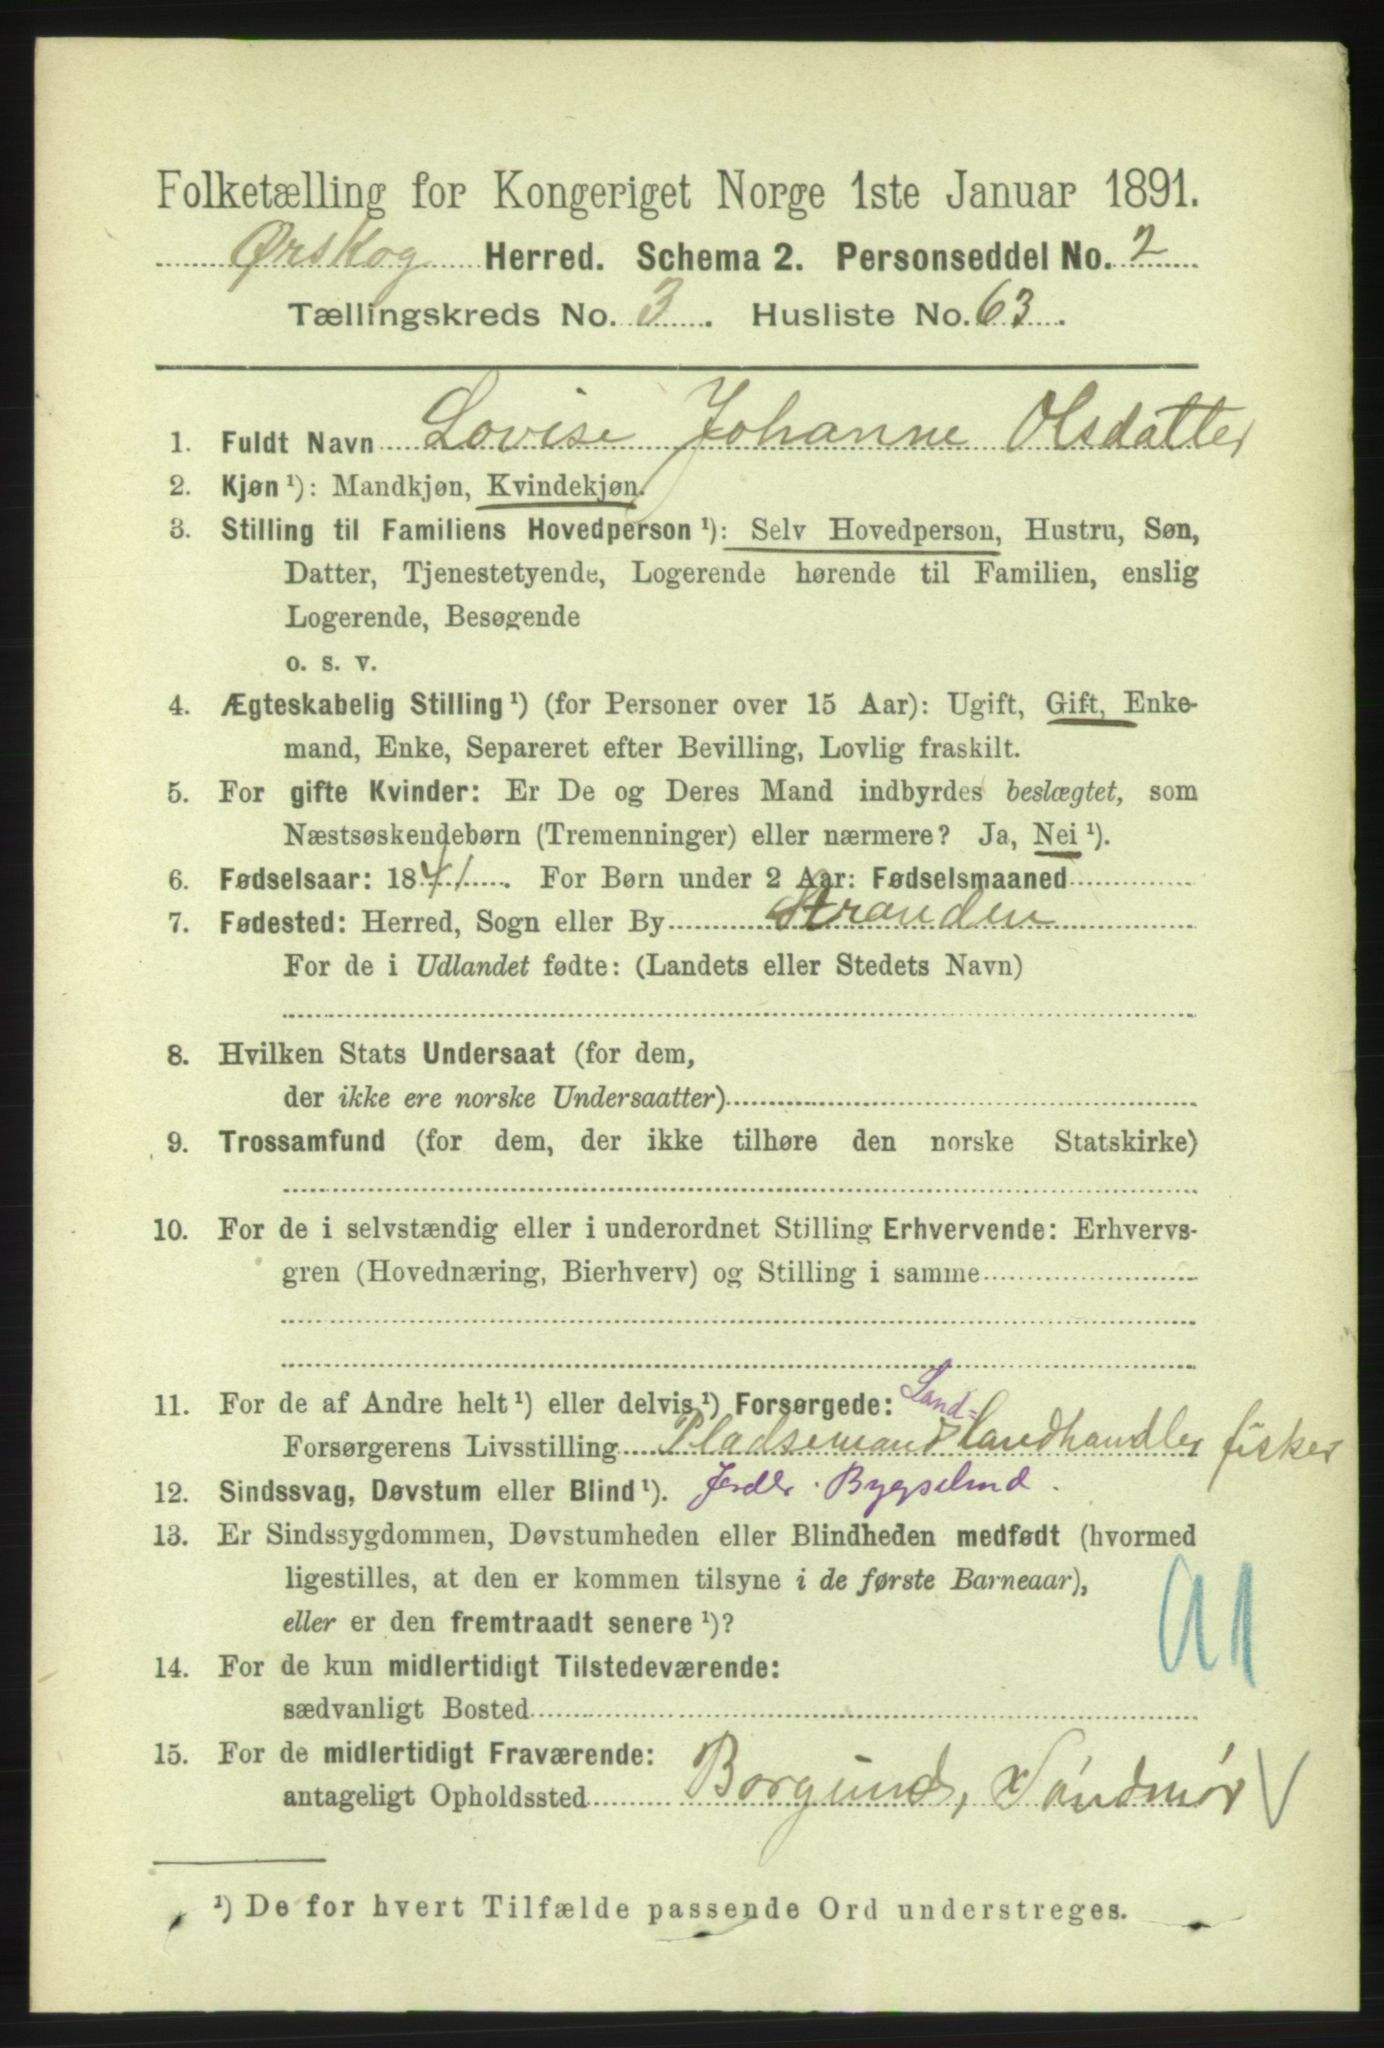 Folketælling for Kongeriget Norge 1ste Januar 1891.
Ørskog Herred. Schema 2. Personseddel No. 2
Tællingskreds No. 3. Husliste No. 63.
1. Fuldt Navn Lovise Johanne Olsdatter
2. Kjøn ¹): Mandkjøn, Kvindekjøn.
3. Stilling til Familiens Hovedperson ¹): Selv Hovedperson, Hustru, Søn,
Datter, Tjenestetyende, Logerende hørende til Familien, enslig
Logerende, Besøgende
o. s. v.
4. Ægteskabelig Stilling ¹) (for Personer over 15 Aar): Ugift, Gift, Enke-
mand, Enke, Separeret efter Bevilling, Lovlig fraskilt.
5. For gifte Kvinder: Er De og Deres Mand indbyrdes beslægtet, som
Næstsøskendebørn (Tremenninger) eller nærmere? Ja, Nei ¹).
6. Fødselsaar: 1841. For Børn under 2 Aar: Fødselsmaaned
7. Fødested: Herred, Sogn eller By Stranden
For de i Udlandet fødte: (Landets eller Stedets Navn)
8. Hvilken Stats Undersaat (for dem,
der ikke ere norske Undersaatter)
9. Trossamfund (for dem, der ikke tilhøre den norske Statskirke)
10. For de i selvstændig eller i underordnet Stilling Erhvervende: Erhvervs-
gren (Hovednæring, Bierhverv) og Stilling i samme
11. For de af Andre helt ¹) eller delvis ¹) Forsørgede: Land=
Forsørgerens Livsstilling Pladsemand landhandler fisker
12. Sindssvag, Døvstum eller Blind ¹).
13. Er Sindssygdommen, Døvstumheden eller Blindheden medfødt (hvormed
ligestilles, at den er kommen tilsyne i de første Barneaar),
eller er den fremtraadt senere ¹)?
14. For de kun midlertidigt Tilstedeværende:
sædvanligt Bosted
15. For de midlertidigt Fraværende:
antageligt Opholdssted Borgund, Söndmør
¹) De for hvert Tilfælde passende Ord understreges.